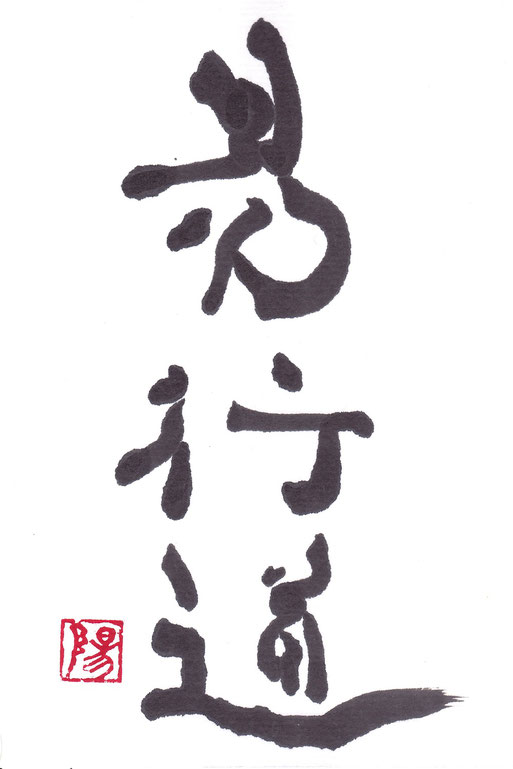 易行道
陽